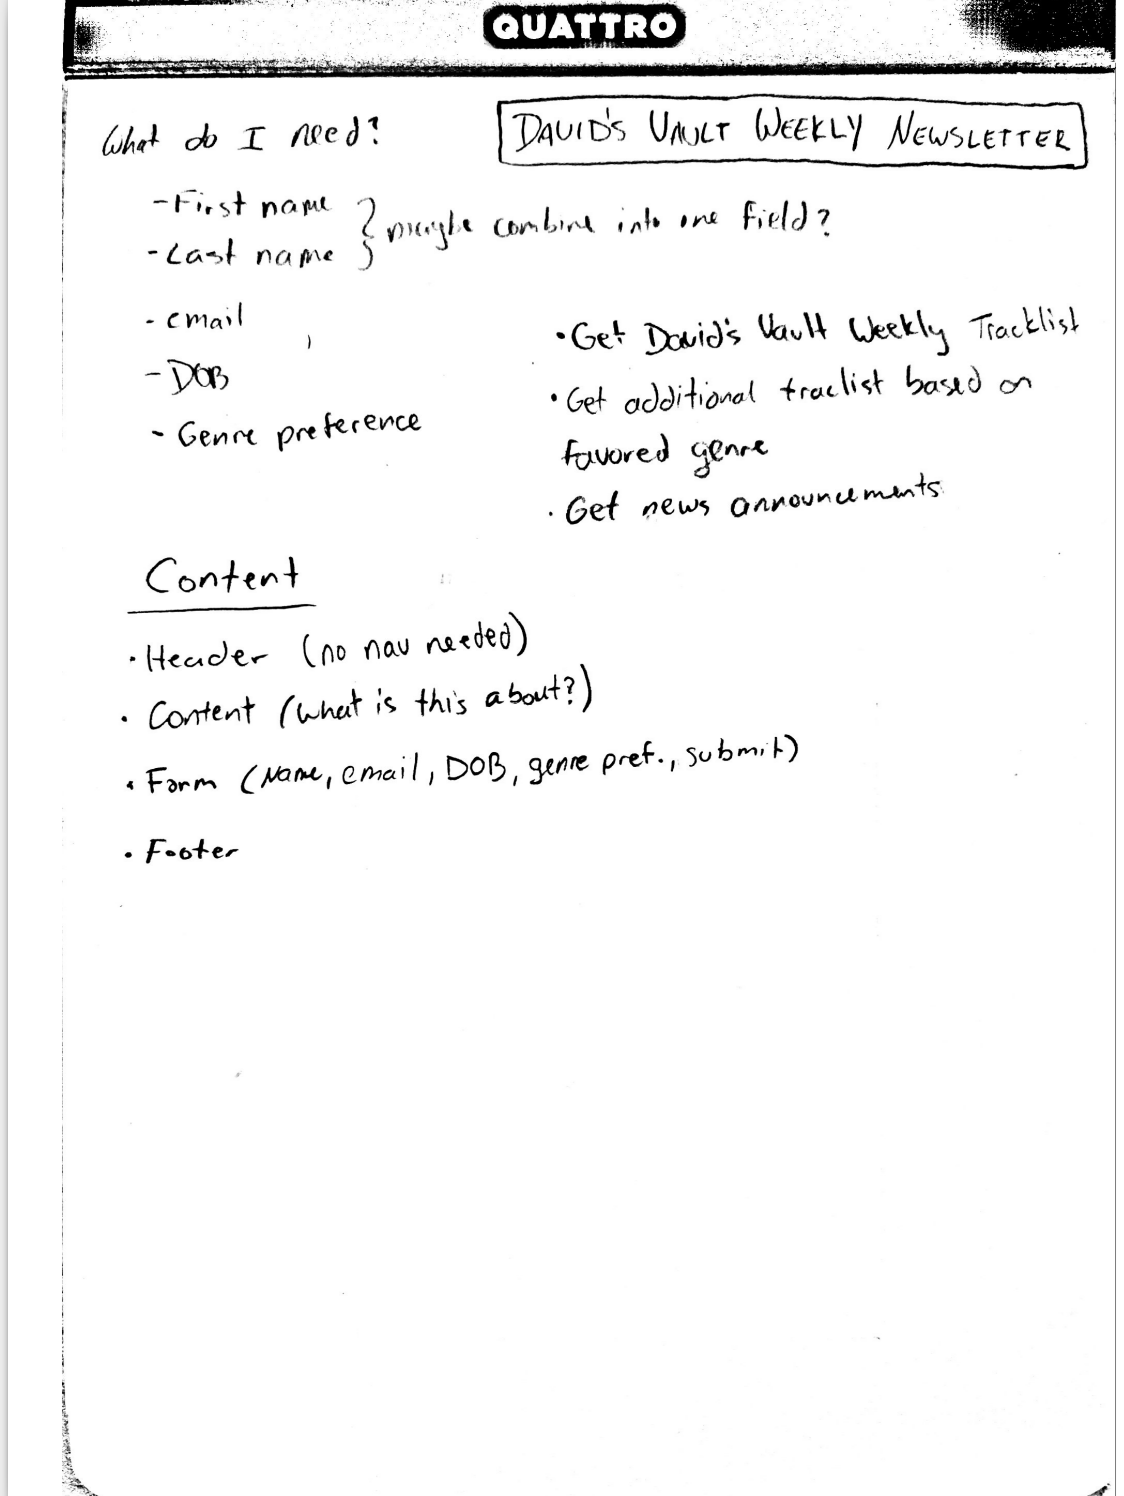 QUATTRO
What do I need?
DAVID'S VAULT WEEKLY NEWSLETTER
- First name
- Last name
} maybe combine into one field?
- email
- DOB
- Genre preference
• Get David's Vault Weekly Tracklist
• Get additional traclist based on
favored genre
• Get news announcements
Content
• Header (no nav needed)
• Content (What is this about?)
• Form (Name, email, DOB, genre pref., submit)
• Footer